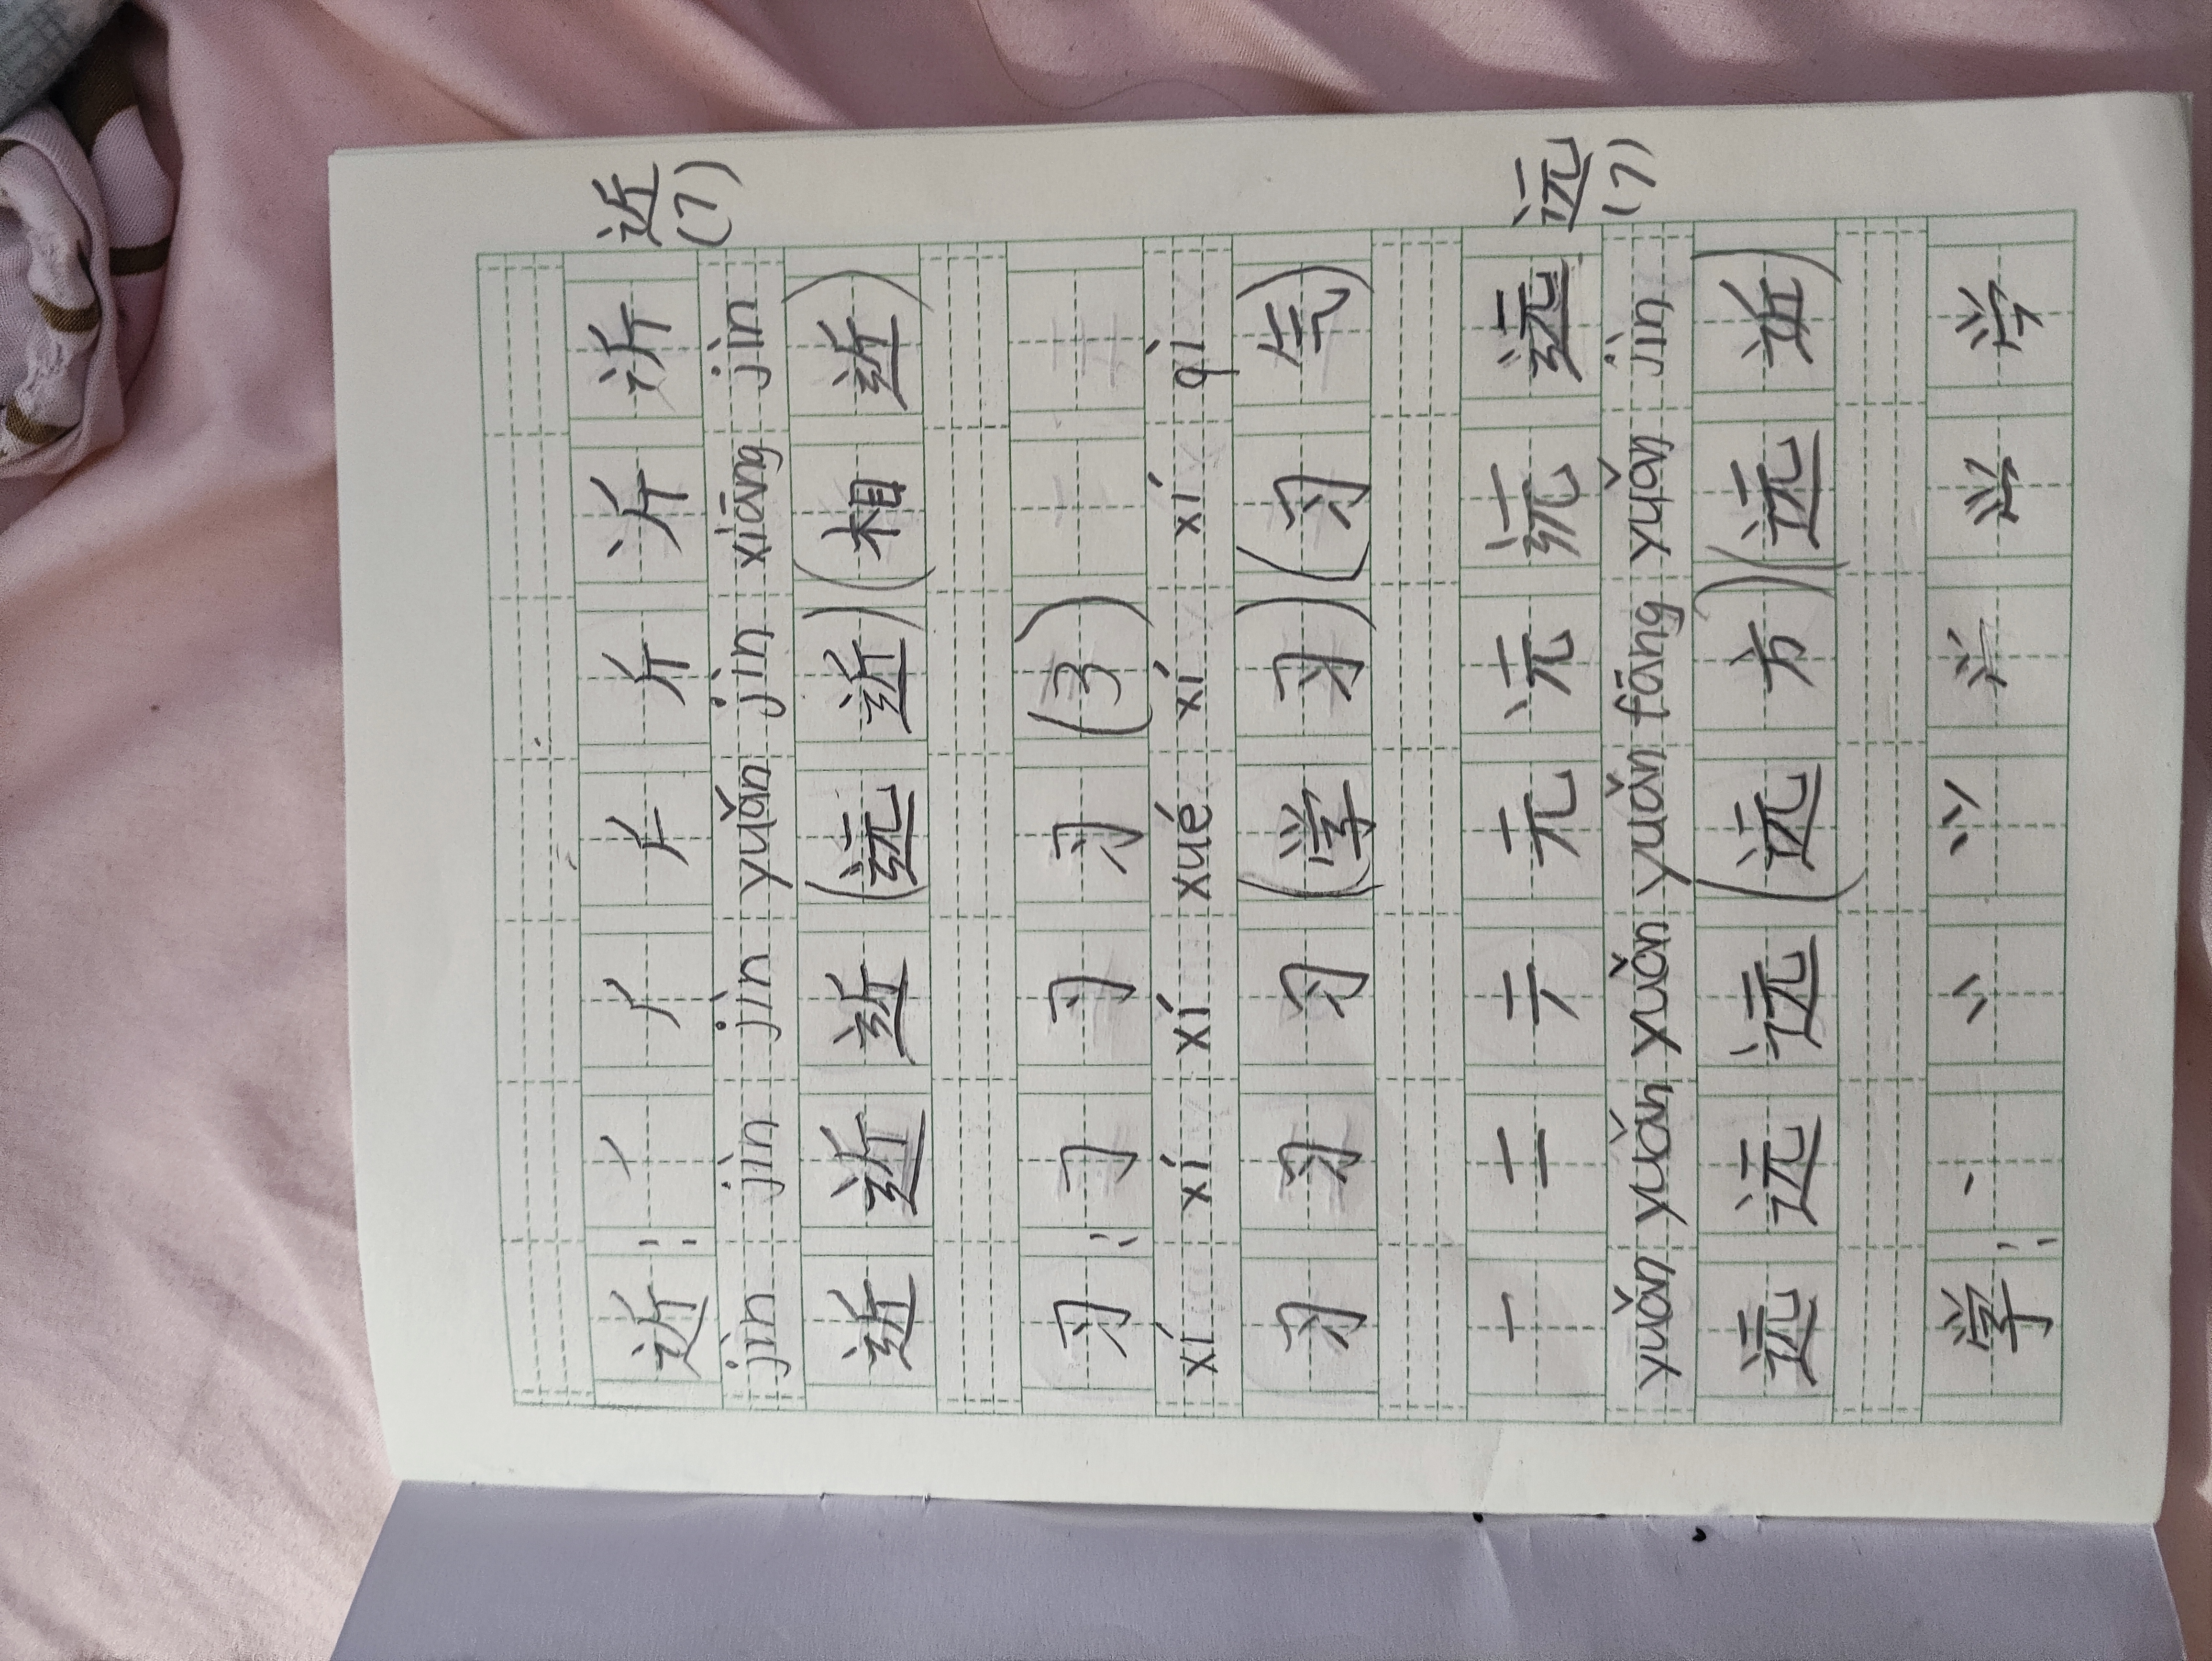 近： 丿 𠂆 斤 近
(7)
jìn jìn jìn yuǎn jìn xiāng jìn
近 近 近 (远 近) (相 近)
习： 𠃌 习 习 (3)
xí xí xí xué xí xí qì
习 习 习 (学 习) (习 气)
一 二 元 远 远
(7)
yuǎn yuǎn yuǎn yuǎn fāng yuǎn jìn
远 远 远 (远 方) (远 近)
学： 丶